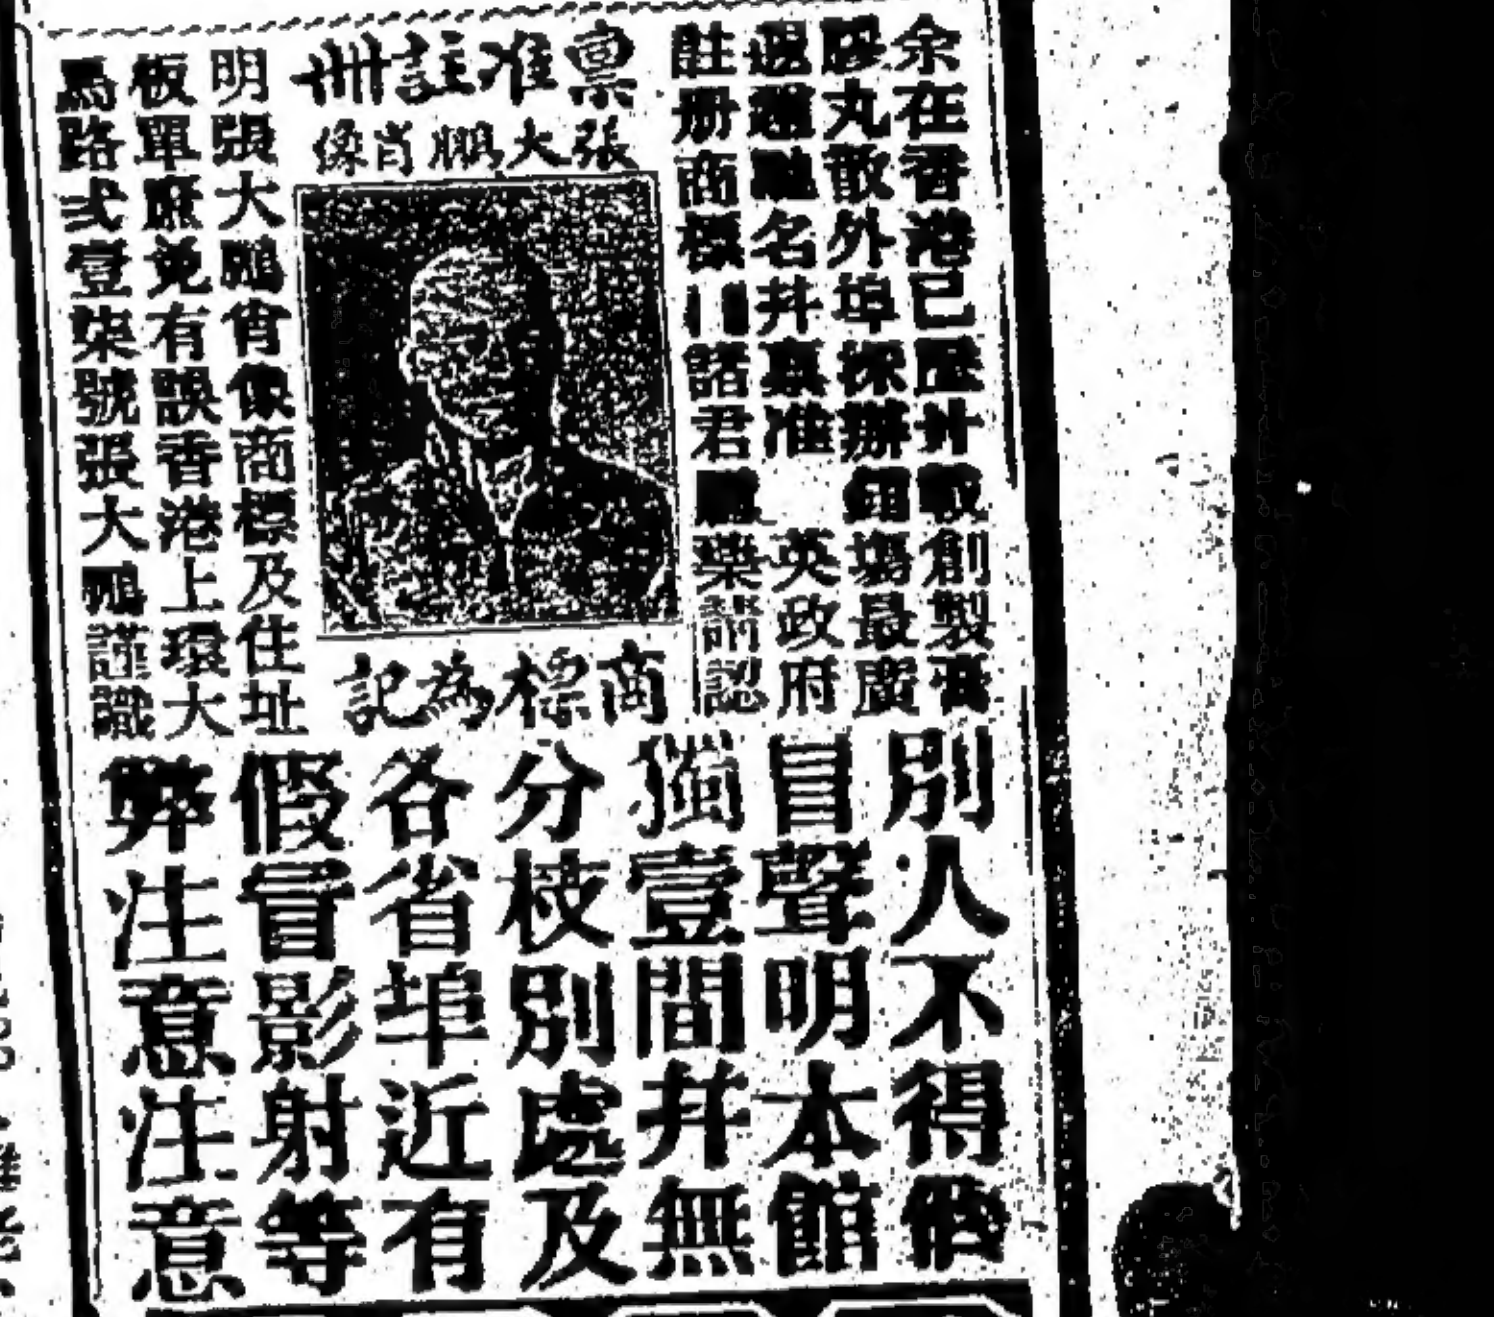 余在香港已歷廿載創製膏
膠丸散外埠採辦 塲最廣
遐邇馳名幷蒙准 英政府
註册商標 諸君 藥請認
稟准註册
張大鵬肖像
商標為記
明張大鵬肖像商標及住址
板單庶免有誤香港上環大
馬路弍壹柒號張大鵬謹識
別人不得假
冒聲明本館
獨壹間幷無
分枝別處及
各省埠近有
假冒影射等
弊注意注意